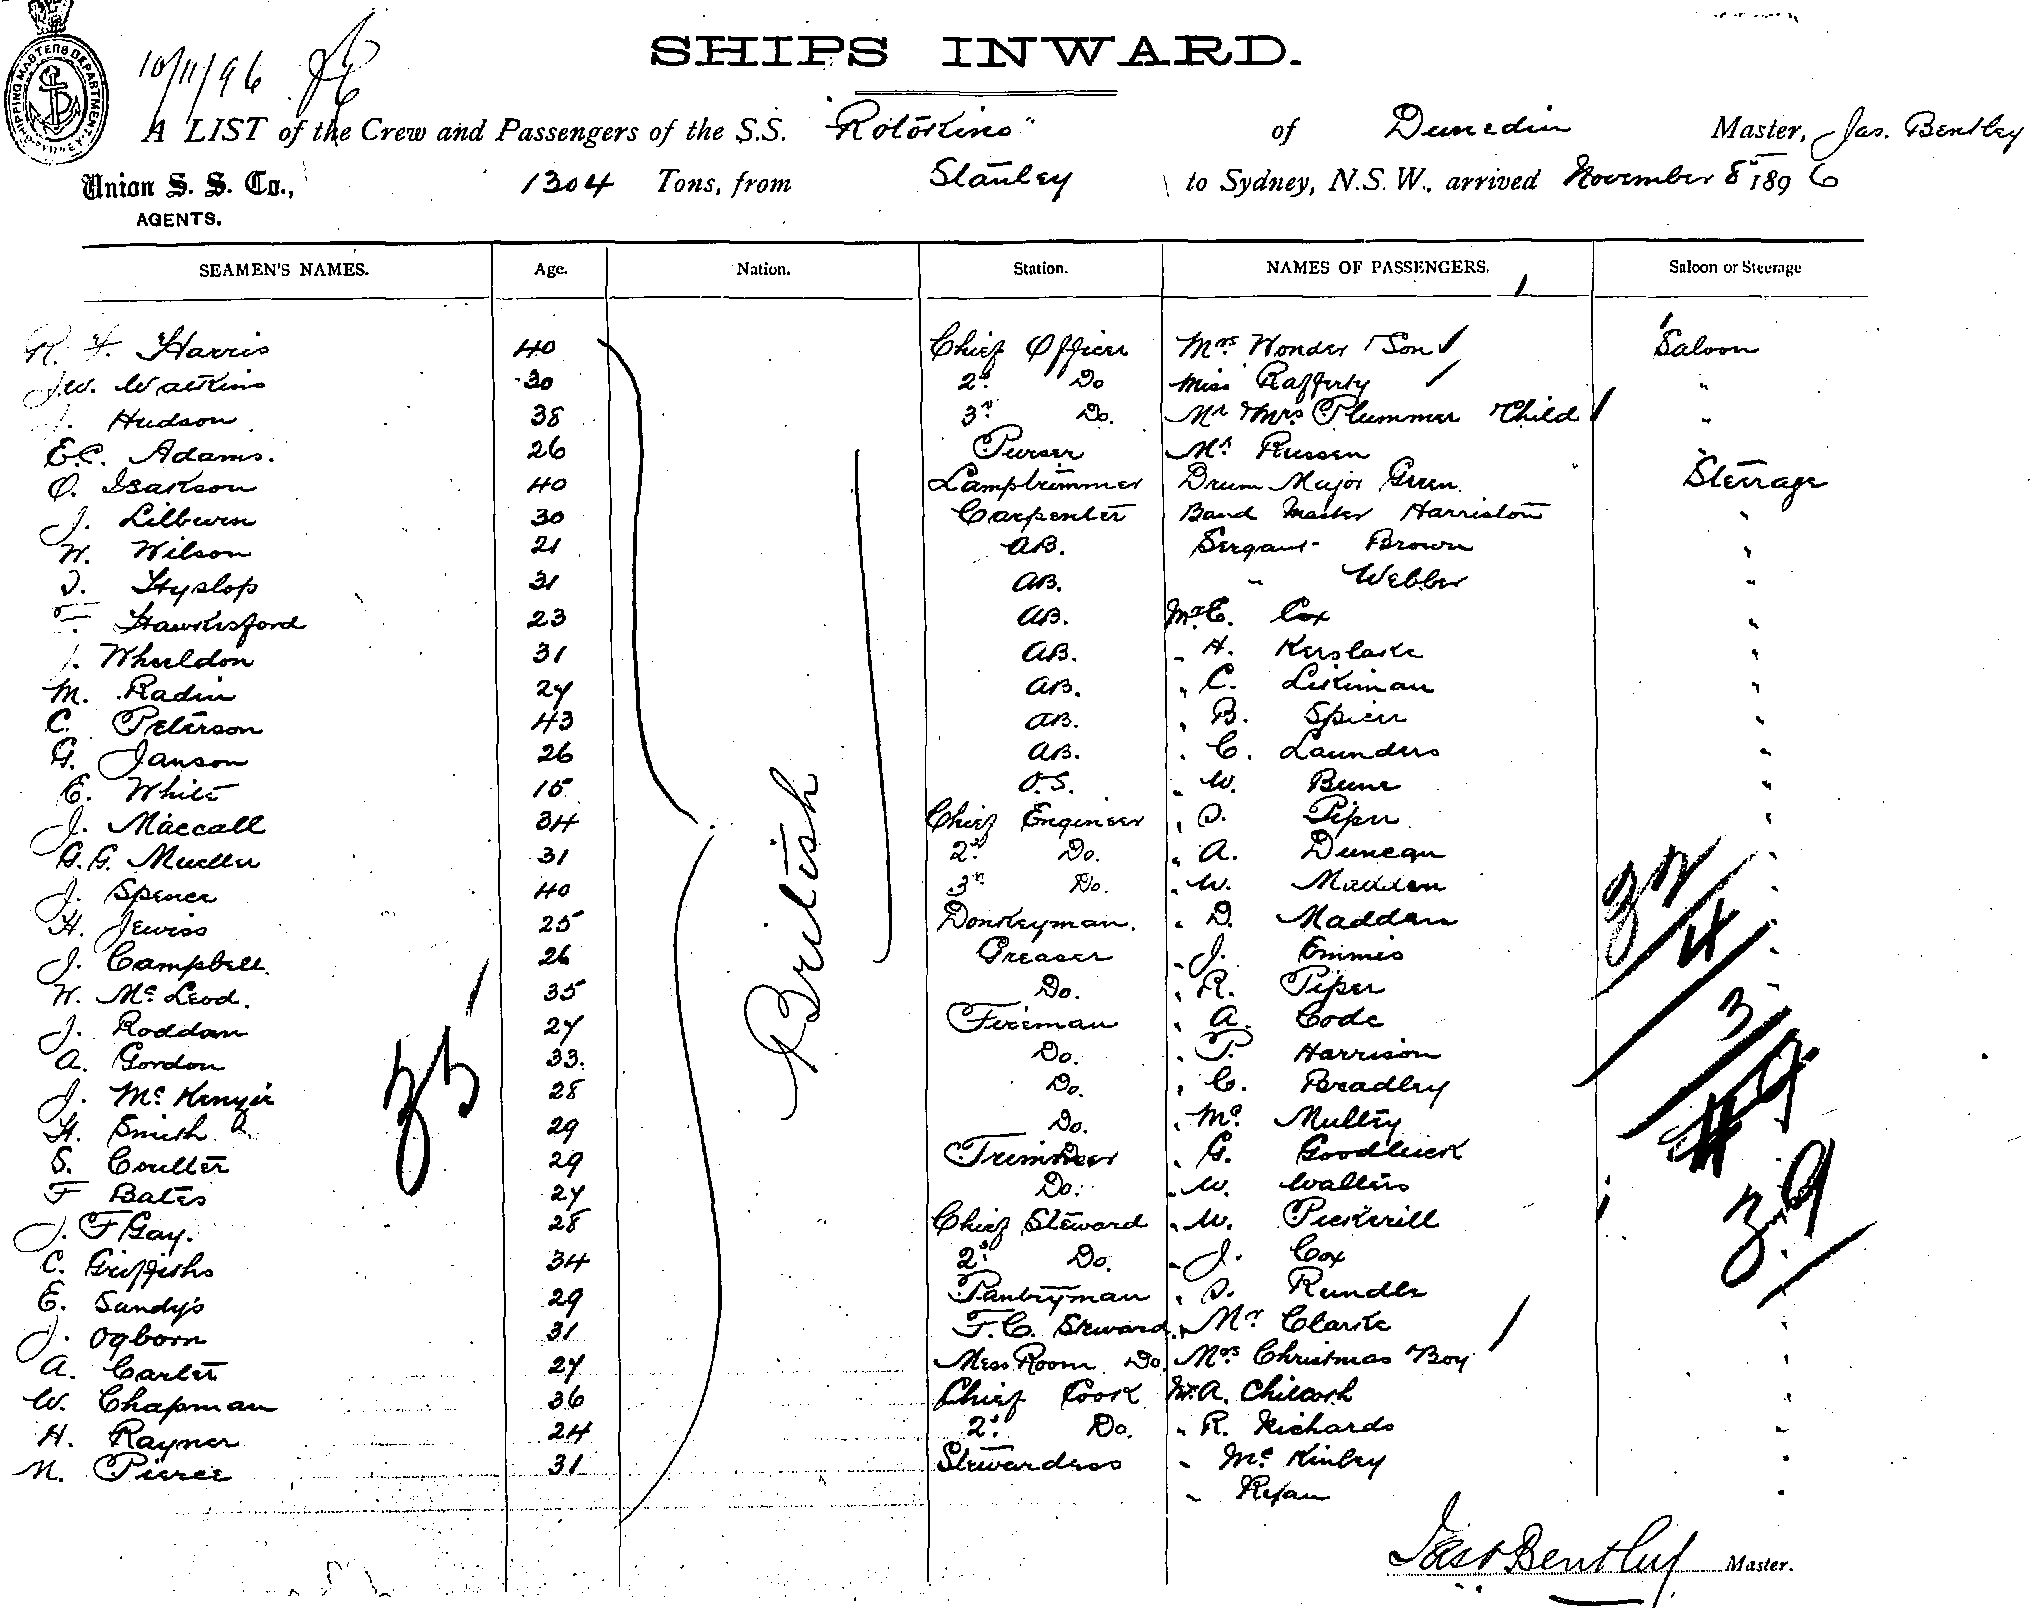 SHIPPING MASTERS DEPARTMENT SYDNEY
10/11/96
SHIPS INWARD.
A LIST of the Crew and Passengers of the S.S. "Rotokino" of Dunedin Master, Jas. Bentley
Union S. S. Co., AGENTS. 1304 Tons, from Stanley to Sydney, N.S.W., arrived November 8th 1896
SEAMEN'S NAMES. Age. Nation. Station. NAMES OF PASSENGERS. Saloon or Steerage
Harris 40 Chief Officer Mrs Wonder + Son Saloon
J.W. Watkins 30 2nd Do Miss Rafferty "
Hudson 38 3rd Do. Mr + Mrs Plummer + Child "
E.C. Adams. 26 Purser Mr Russen "
O. Isakson 40 Lamptrimmer Drum Major Green Steerage
J. Lilburn 30 Carpenter Band Master Harriston "
W. Wilson 21 AB. Sergant Brown "
Hyslop 31 AB. " Webber "
T. Hawkisford 23 AB. Mr C. Cox "
Wheeldon 31 AB. " H. Kerslake "
M. Radin 27 AB. " C. Likiman "
C. Peterson 43 AB. " B. Spicer "
G. Janson 26 AB. " C. Launders "
E. White 15 O.S. " W. Bune "
J. Maccall 34 Chief Engineer " Piper "
G.G. Mueller 31 2nd Do. " A. Duncan "
J. Spencer 40 3rd Do. " W. Madden "
H. Jewiss 25 Donkeyman. " D. Madden "
J. Campbell. 26 Greaser " J. Emmis "
W. McLeod. 35 Do. " R. Piper "
J. Roddan 27 Fireman " A. Code
A. Gordon 33. Do. " T. Harrison
J. McKenzie 28 Do. " C. Bradley
H. Smith 29 Do. " Mc Multy
S. Coulter 29 Trimmer " G. Goodluck
F Bates 27 Do. " W. Walters
J. F Gay. 28 Chief Steward " W. Pickerill
C. Griffiths 34 2nd Do. " J. Cox
E. Sandys 29 Pantryman " Rundle
J. Ogborn 31 F.C. Steward " Mr Clarke "
A. Carter 27 Mess Room Do. Mrs Christmas + Boy "
W. Chapman 36 Chief Cook Mr A. Chilcott "
H. Rayner 24 2nd Do. " R. Richards "
N. Pierce 31 Stewardess " McKinley "
" Ryan "
British
35
32
4
3
39
Jas Bentley Master.